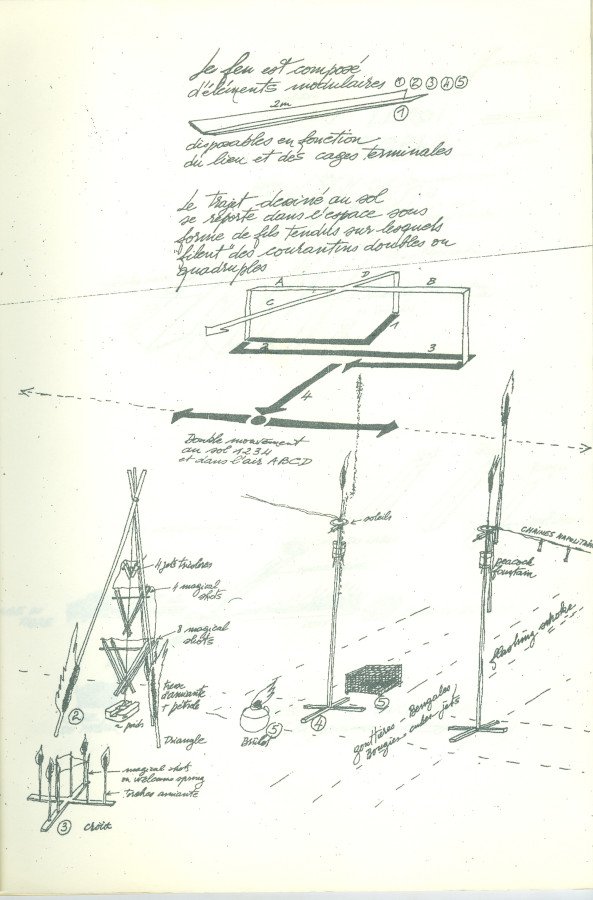 Le feu est composé
d'éléments modulaires ① ② ③ ④ ⑤
2m
①
disposables en fonction
du lieu et des cages terminales
Le trajet dessiné au sol
se reporte dans l'espace sous
forme de fils tendus sur lesquels
"filent" des courantins doubles ou
quadruples
A D B
C
1
2 3
4
Double mouvement
au sol 1234
et dans l'air ABCD
soleils
CHAINES
peacock
fountain
4 jets tricolores
4 magical
shots
8 magical
shots
flashing smoke
d'amiante
+ pétrole
poids
②
Triangle
Brûlot ⑤
④
⑤
gouttières Bengales
Bougies jets
magical shots
ou welcome spring
torches amiante
③ croix